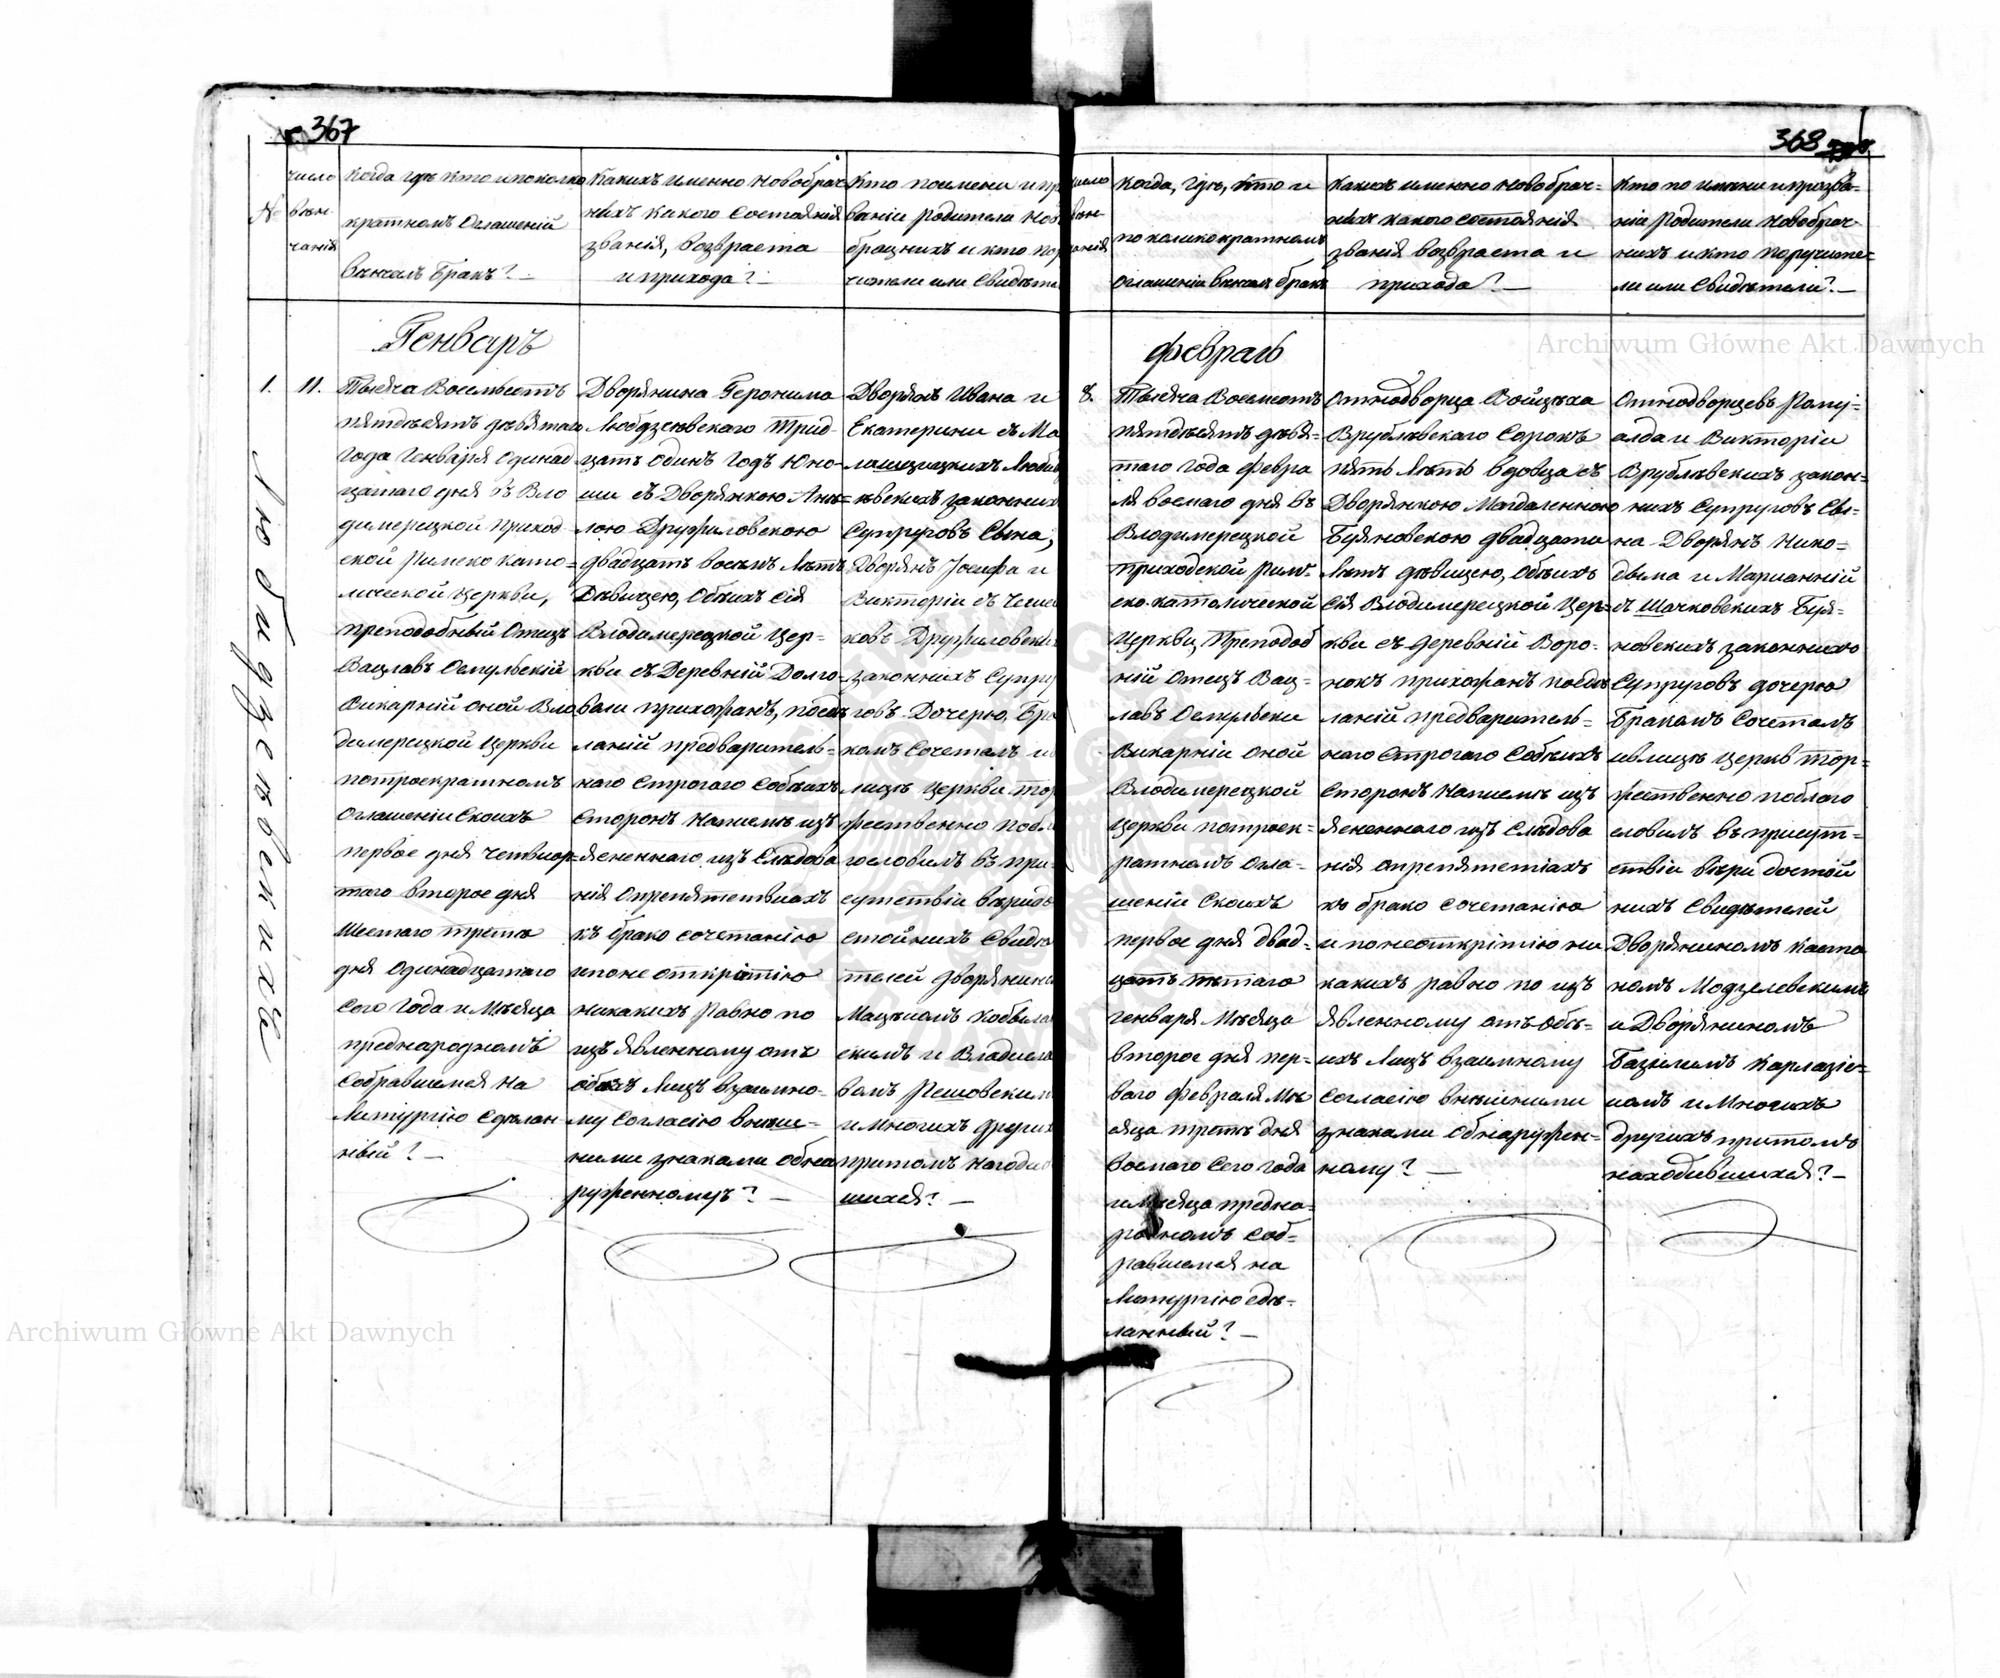 367
№
число
вѣн-
чанія
Когда гдѣ кто и по колико
кратномъ Оглашеній
вѣнчалъ Бракъ? —
Какихъ именно новобрач
нихъ какого Состоянія
званія, возвраста
и прихода? —
Кто по имени и пр
ваніи родители Нов
брачнихъ и кто пор
чители или Свидѣте
Генваръ
1.
11.
Тысяча Восемьсотъ
пятдесятъ девятаго
Года Генваря Одинад
цатаго дня въ Вло
димерецкой Приход
ской Римско Като=
лической Церкви,
преподобный Отецъ
Вацлавъ Осмульскій
Викарній оной Вло
димерецкой Церкви
потроекратномъ
Оглашеніи Скоихъ
первое дня четвиор=
таго второе дня
Шестаго третте
дня Одинадцатаго
Сего Года и Мѣсяца
преднародномъ
Собравшемся на
Литургію Сделан
ній? —
Дворянина Геронима
Любдзѣевскаго трид-
цать Одинъ Годъ Юно-
ши съ Дворянкою Ане=
лою Друфиловскою
двадцать восемъ Лѣтъ
Дѣвицею, Обѣихъ сія
Влодимерецкой Цер=
кви съ Деревній Долго-
воли прихожанъ, посдѣ
ланій предваритель=
наго Строгаго Собѣихъ
Сторонъ Написмѣ изъ
ясненнаго изъ Слѣдова
нія Опрепятетвиахъ
къ брако сочетанію
ипоне открітію
никакихъ Равно по
изъявленному отъ
обѣихъ Лицъ взаимно-
му Согласію внѣш=
ними знаками Обна
руженному? —
Дворянъ Ивана и
Екатерины съ Ма
Супруговъ Сына,
Дворянъ Іосифа и
Викторіи съ Чеше
ковъ Друфиловски
законнихъ Супру
говъ Дочерю, Бра
комъ Сочеталъ и
лицѣ Церкви тор
жественно побла
гословилъ въ при
сутствіи вѣридо
стойнихъ Свидѣ
телей Дворянин
Мацѣиомъ Кобыла
скимъ и Владисла
вомъ Решовским
и Многихъ других
притомъ находив
шихся? —
Любидзѣевскихъ
368
число
вѣн-
чанія
Когда, гдѣ, кто и
по коликократномъ
Оглашеніи вѣнчалъ бракъ
Какихъ именно новобрач=
нихъ какого состоянія
званія возвраста и
прихода? —
Кто по имени и прозва-
ніи Родители Новобрач-
нихъ и кто поручите=
ли или Свидѣтели? —
Февраль
8.
Тысяча Восемсотъ
пятдесятъ девя=
таго года Февра
ля восмаго дня въ
Влодимерецкой
приходской Рим=
ско-католической
Церкви, Преподоб
ній Отецъ Вац-
лавъ Осмульски
Викарніи оной
Влодимерецкой
Церкви потроек=
ратномъ Огла-
шеній Скоихъ
первое дня двад=
цать пятаго
генваря Мѣсяца
второе дня пер-
ваго Февраля Мѣ
сяца третъ дня
восмаго сего года
и Мѣсяца предна-
родномъ Соб=
равшемся на
Литургію сдѣ-
ланній? —
Однодворца Войцѣха
Врублѣвскаго Сорокъ
пять Лѣтъ вдовца съ
Дворянкою Магдаленною
Буяновскою двадцати
Лѣтъ дѣвицею, Обѣихъ
сія Влодимерецкой Цер=
кви съ деревній Воро-
нокъ прихожанъ посдѣ
ланій предваритель=
наго Строгаго Собѣихъ
Сторонъ Написмѣ изъ
ясненнаго изъ Слѣдова
нія опрепятетіахъ
къ брако сочетанію
и понеоткрітію ни
какихъ равно по изъ
явленному отъ обѣ=
ихъ Лицъ взаимному
Согласію внѣшними
знаками Обнаружен=
ному? —
Однодворцевъ Рому=
алда и Викторіи
Врублѣвскихъ закон=
нихъ Супруговъ Сы-
на Дворянъ Нико=
дыма и Марианній
съ Шачковскихъ Буя=
новскихъ законнихъ
Супруговъ дочерю
Бракомъ Сочеталъ
ивлицѣ Церкв тор=
жественно поблаго
словилъ въ присут=
ствіи вѣри достой
нихъ Свидѣтелей
Дворяниномъ Каета
номъ Модзелевскимъ
и Дворяниномъ
Базилимъ Карлазіе=
иомъ и Многихъ
другихъ притомъ
находившихся? —
Archiwum Główne Akt Dawnych
Archiwum Główne Akt Dawnych